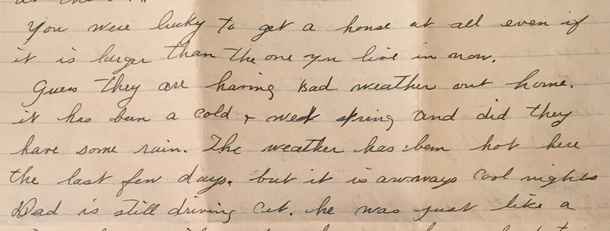 You were lucky to get a house at all even if
it is larger than the one you live in now.
Guess they are having bad weather out home.
it has been a cold + wet spring and did they
have some rain. The weather has been hot here
the last few days. but it is always cool nights
Dad is still driving Cat. he was just like a